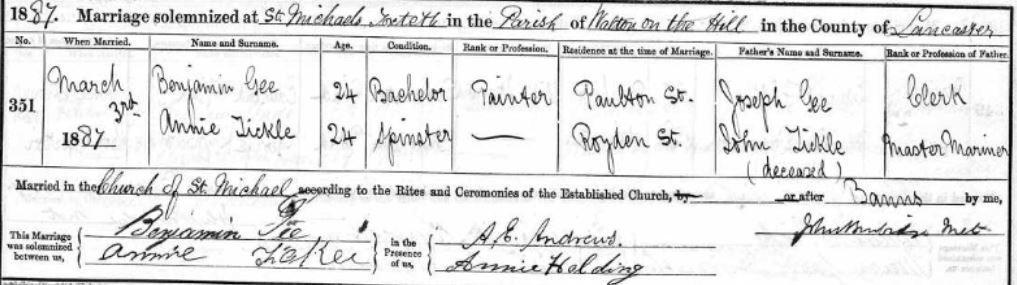 1887. Marriage solemnized at St. Michaels Toxteth in the Parish of Walton on the Hill in the County of Lancaster
No. When Married. Name and Surname. Age. Condition. Rank or Profession. Residence at the time of Marriage. Father's Name and Surname. Rank or Profession of Father.
351 March 3rd 1887 Benjamin Gee 24 Bachelor Painter Paulton St. Joseph Gee Clerk
Annie Tickle 24 Spinster — Royden St. John Tickle (deceased) Master Mariner
Married in the Church of St. Michael according to the Rites and Ceremonies of the Established Church, by or after Banns by me,
This Marriage was solemnized between us, Benjamin Gee Annie
In the Presence of us, A. E. Andrews. Annie Halding